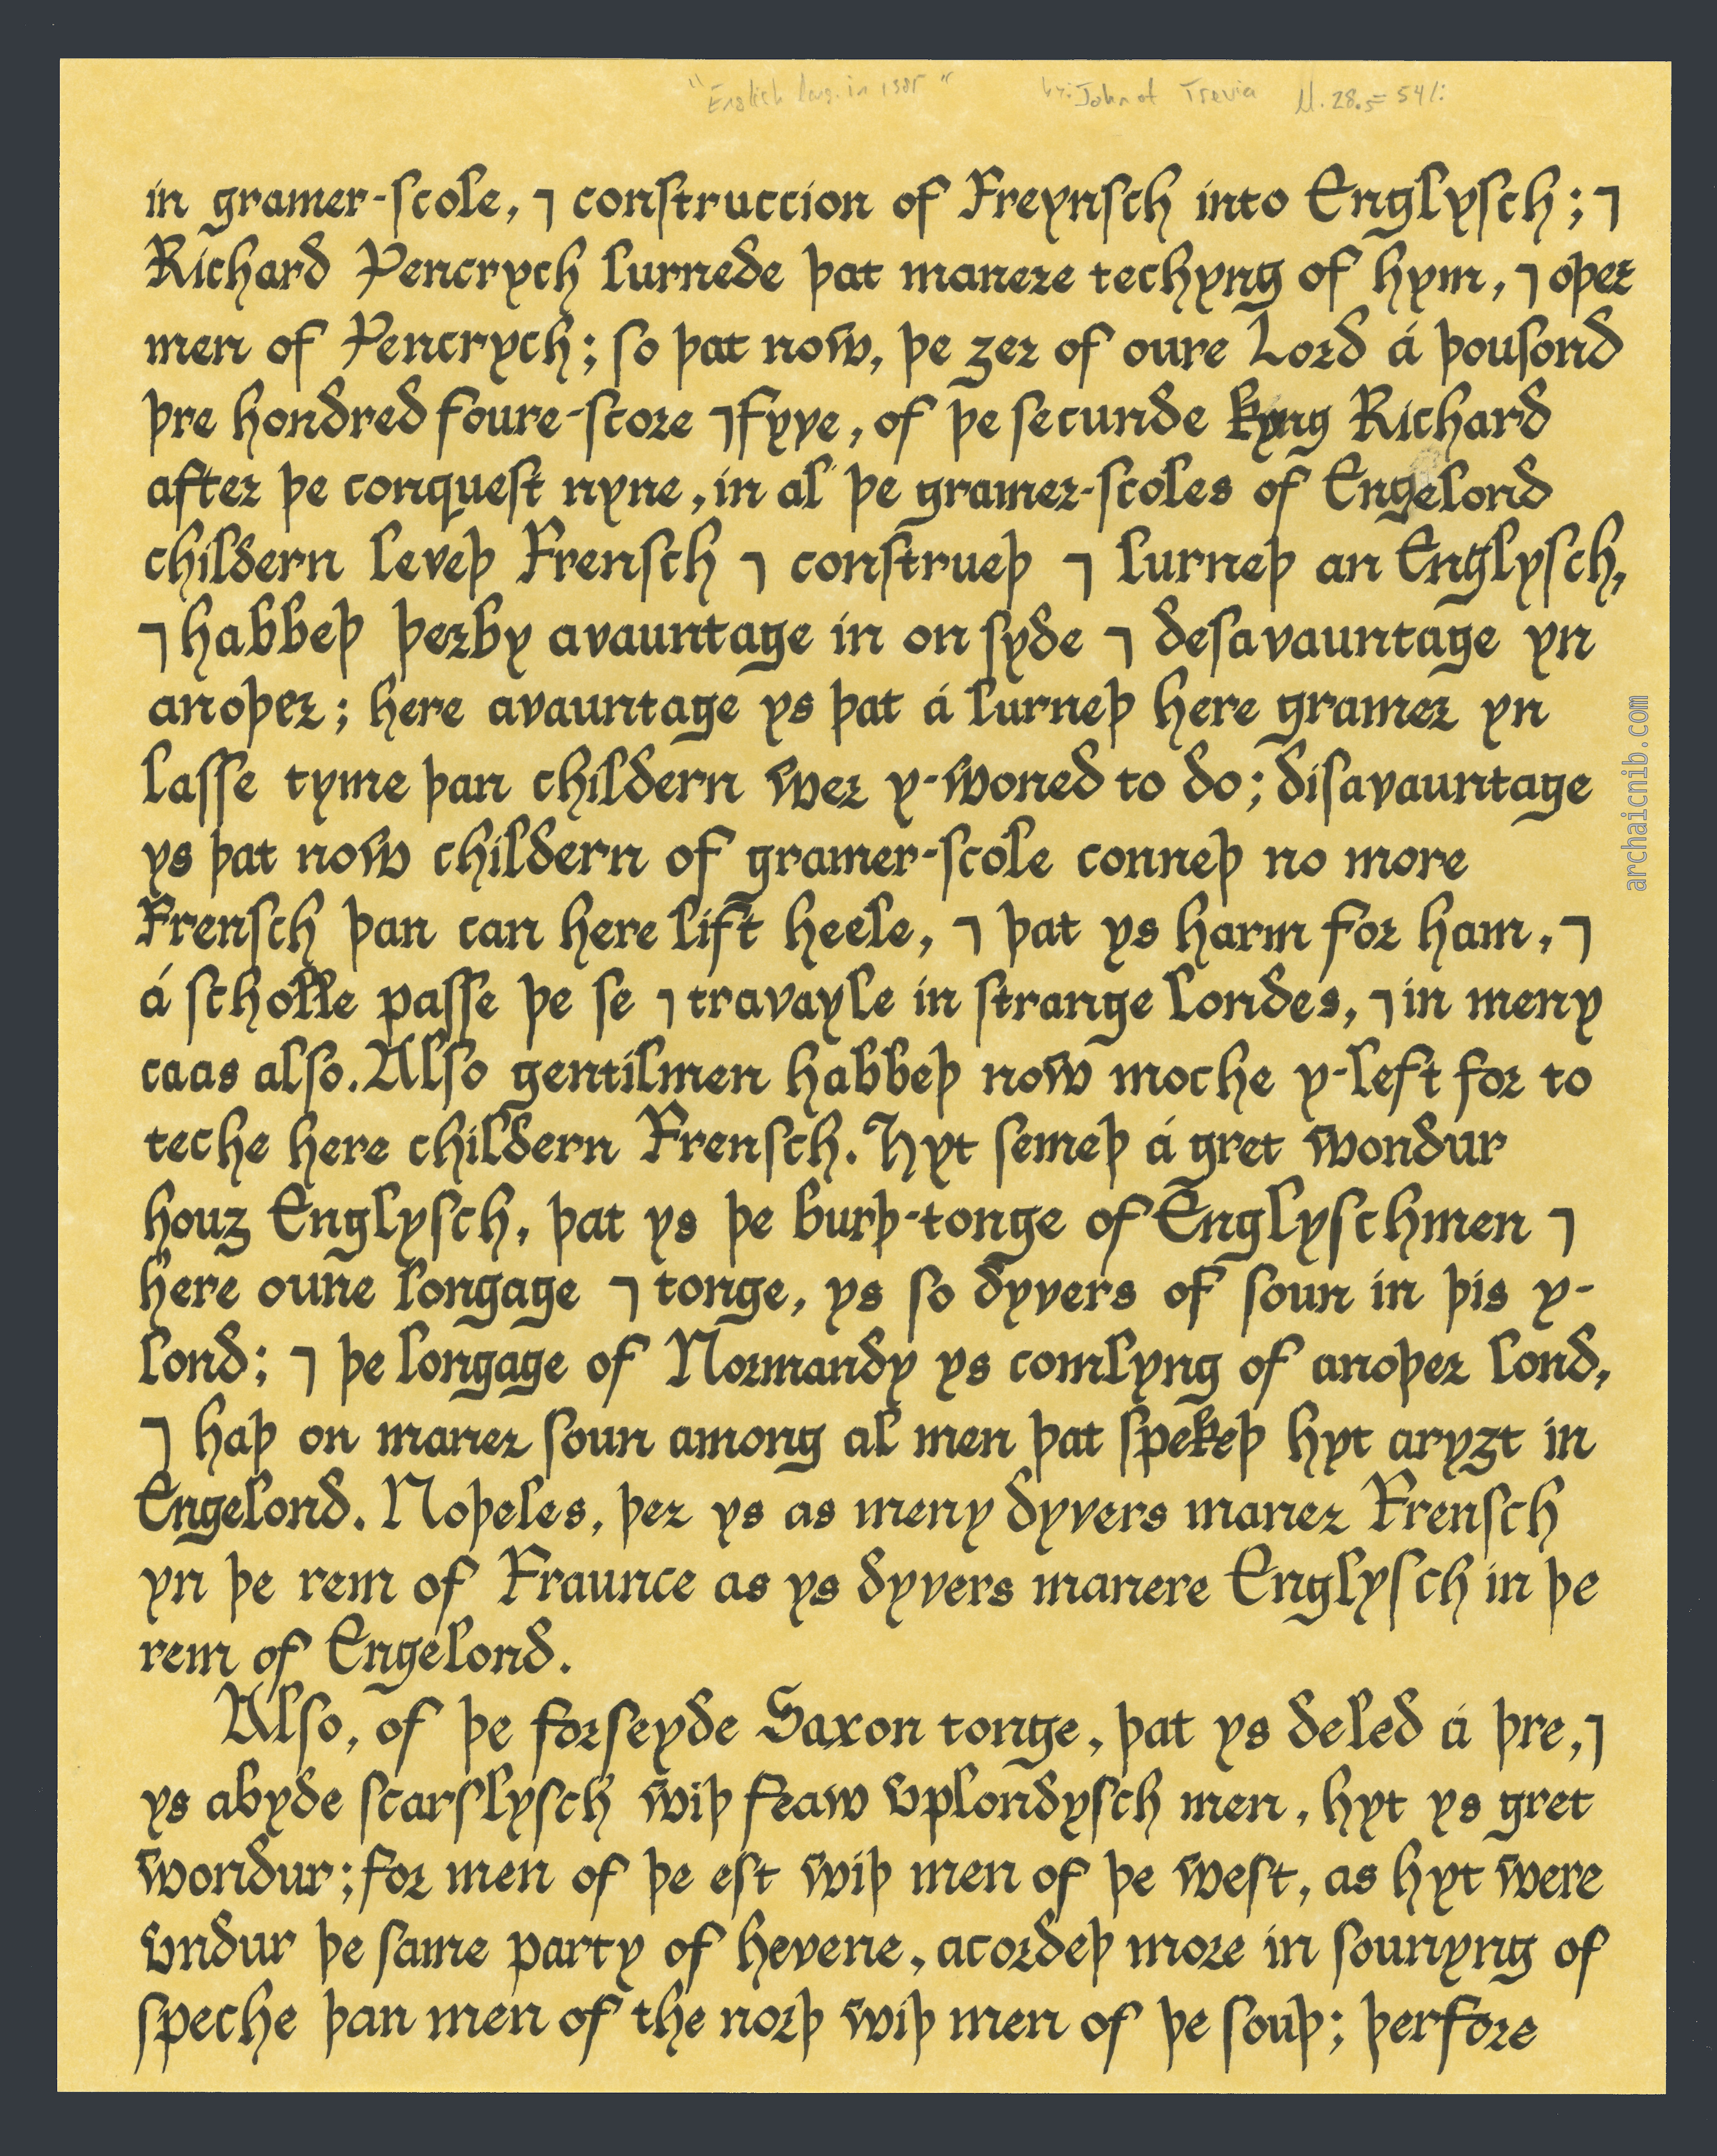 "English lang. in 1385" by: John of Trevia
in gramer-scole, ⁊ construccion of Freynsch into Englysch; ⁊
Richard Pencrych lurnede þat manere techyng of hym, ⁊ oþer
men of Pencrych; so þat now, þe ȝer of oure Lord á þousond
þre hondred foure-score ⁊ fyve, of þe secunde kyng Richard
after þe conquest nyne, in al þe gramer-scoles of Engelond
childern leveþ Frensch ⁊ construeþ ⁊ lurneþ an Englysch,
⁊ habbeþ þerby avauntage in on syde ⁊ desavauntage yn
anoþer; here avauntage ys þat á lurneþ here gramer yn
lasse tyme þan childern wer y-woned to do; disavauntage
ys þat now childern of gramer-scole conneþ no more
Frensch þan can here lift heele, ⁊ þat ys harm for ham, ⁊
á scholle passe þe se ⁊ travayle in strange londes, ⁊ in meny
caas also. Also gentilmen habbeþ now moche y-left for to
teche here childern Frensch. Hyt semeþ á gret wondur
houȝ Englysch, þat ys þe burþ-tonge of Englyschmen ⁊
here oune longage ⁊ tonge, ys so dyvers of soun in þis y-
lond; ⁊ þe longage of Normandy ys comlyng of anoþer lond,
⁊ haþ on maner soun among al men þat spekeþ hyt aryȝt in
Engelond. Noþeles, þer ys as meny dyvers maner Frensch
yn þe rem of Fraunce as ys dyvers manere Englysch in þe
rem of Engelond.
Also, of þe forseyde Saxon tonge, þat ys deled á þre, ⁊
ys abyde scarslysch wiþ feaw vplondysch men, hyt ys gret
wondur; for men of þe est wiþ men of þe west, as hyt were
vndur þe same party of hevene, acordeþ more in sounyng of
speche þan men of the norþ wiþ men of þe souþ; þerfore
archaicnib.com